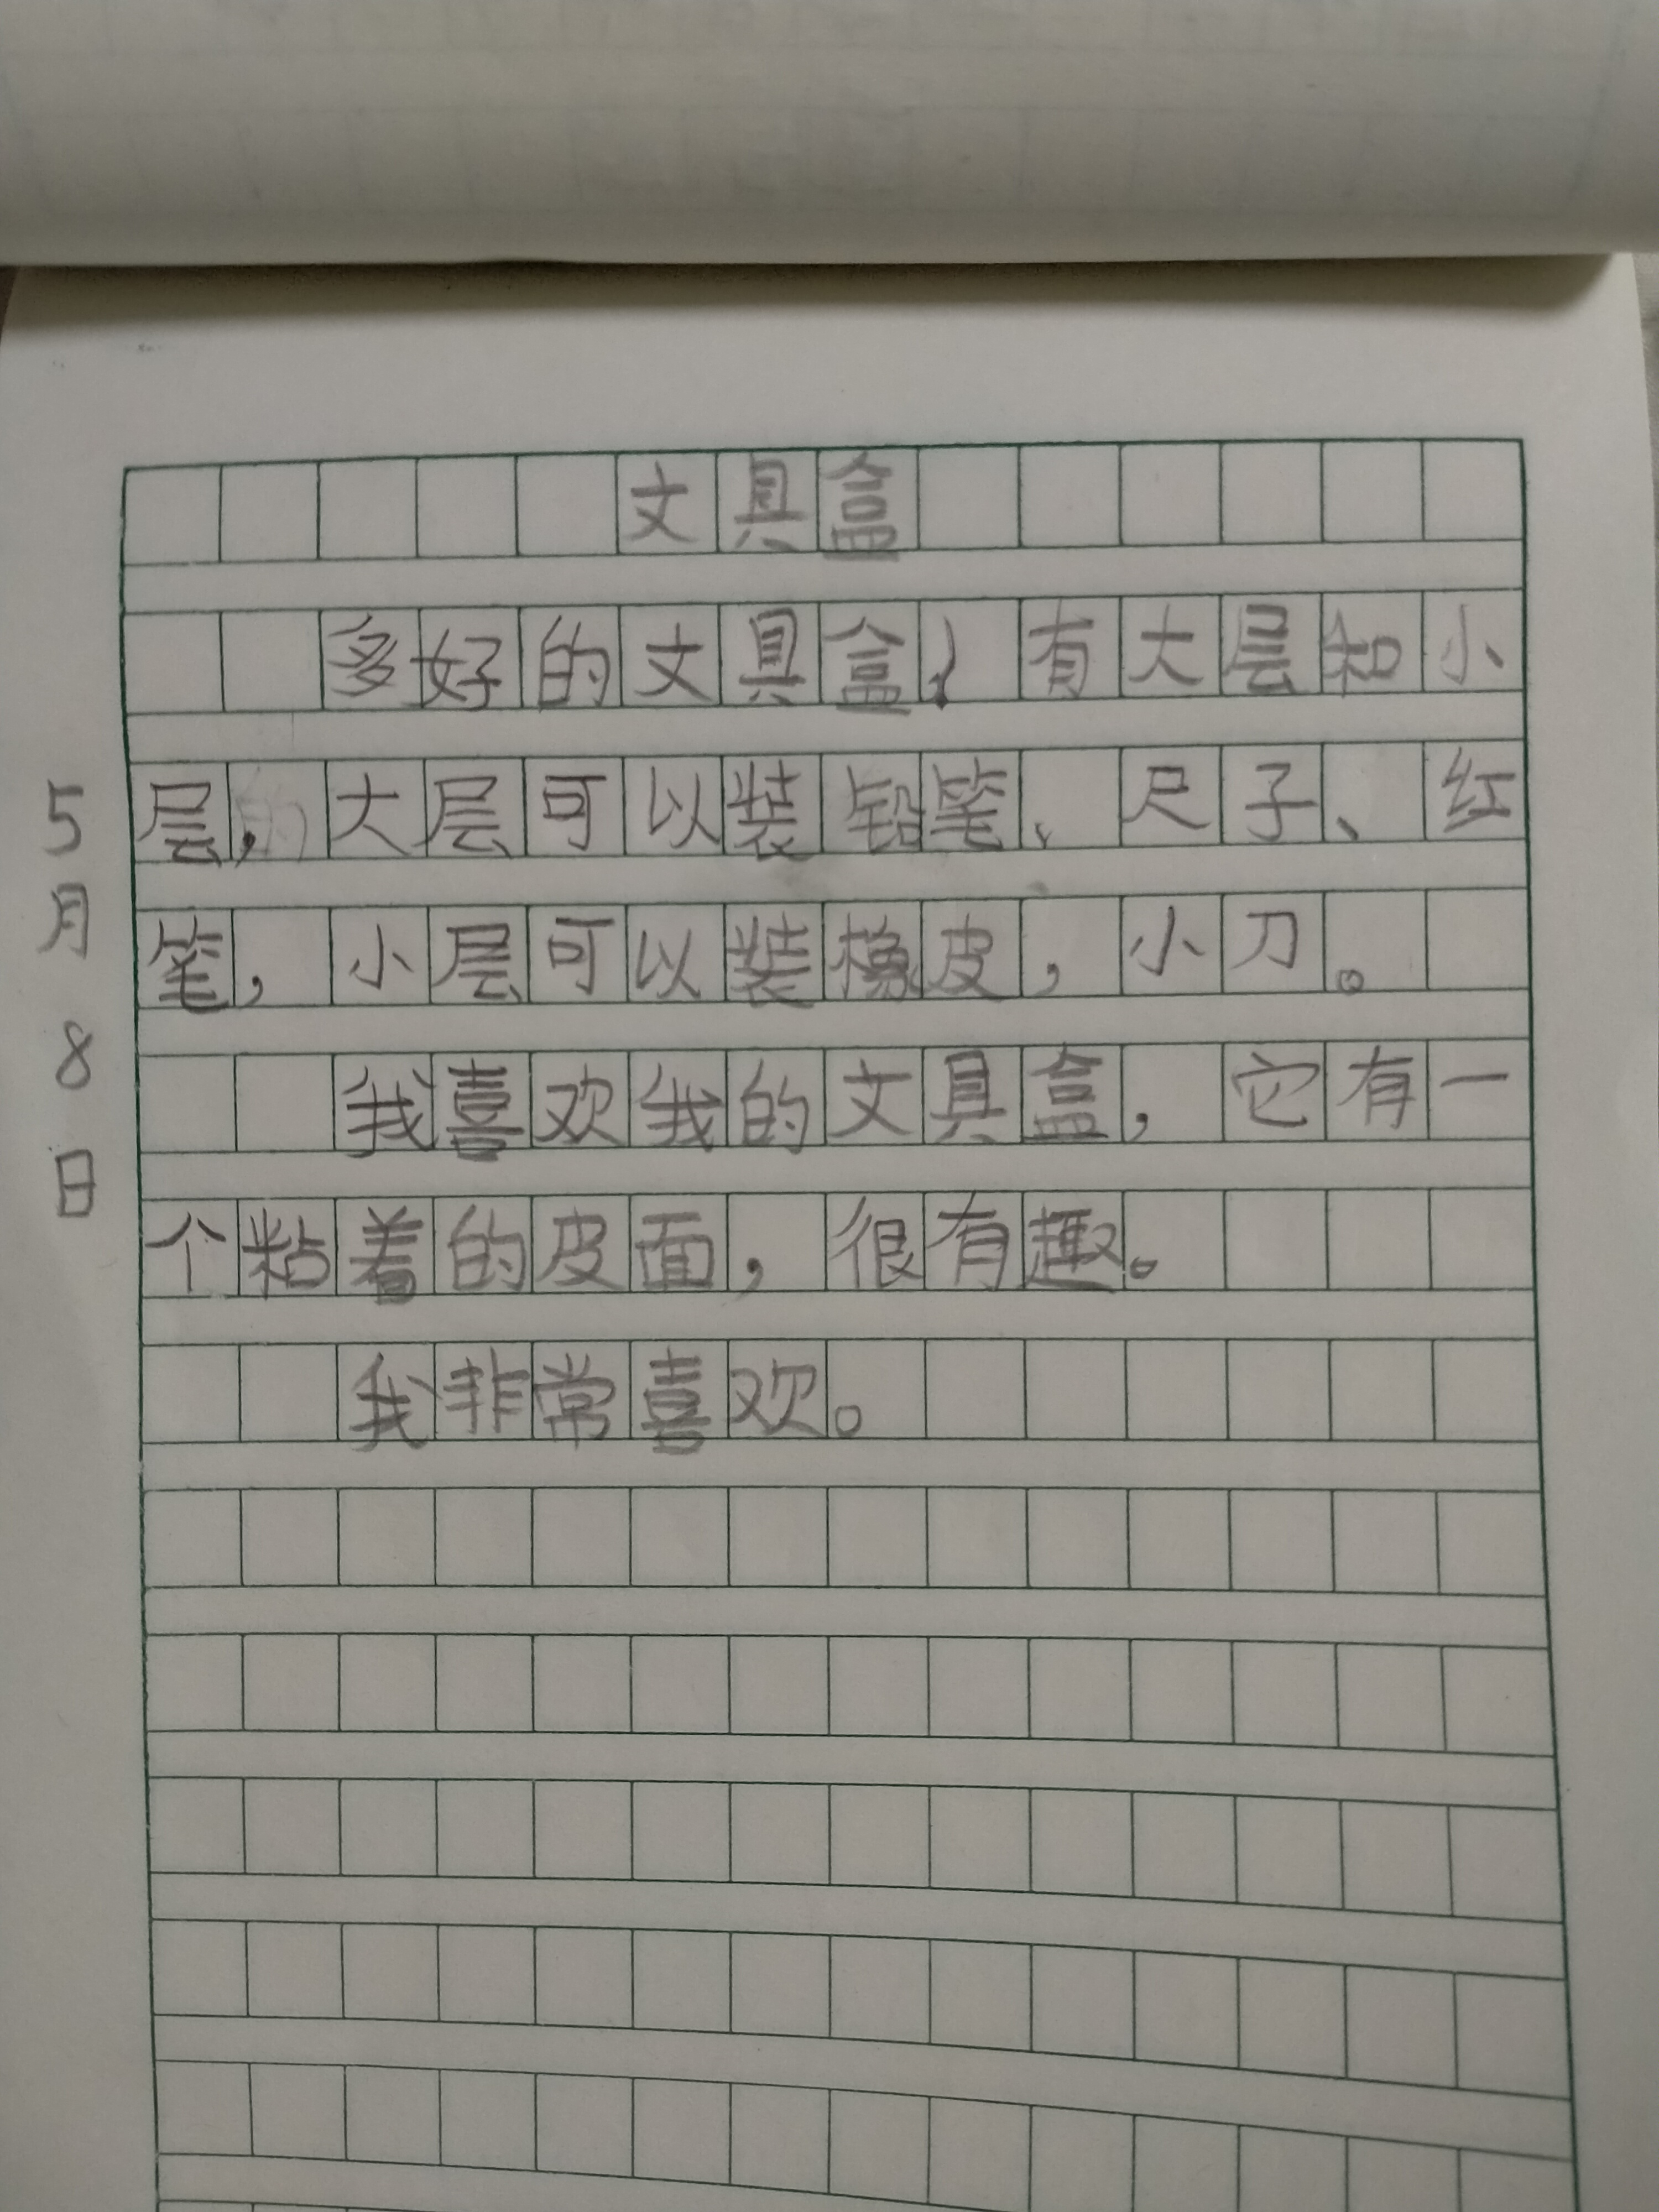 文具盒
多好的文具盒！有大层和小
层，大层可以装铅笔、尺子、红
笔，小层可以装橡皮，小刀。
我喜欢我的文具盒，它有一
个粘着的皮面，很有趣。
我非常喜欢。
5月8日